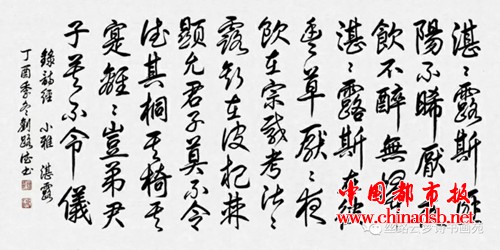 湛〻露斯匪
陽不晞厭〻夜
飲不醉無歸
湛〻露斯在彼
豐草厭〻夜
飲在宗載考湛〻
露斯在彼杞棘
顯允君子莫不令
德其桐其椅其
實離〻豈弟君
子莫不令儀
錄詩經 小雅 湛露
丁酉季冬劉路德書
中国都市报
www.chinadsb.net
丝路云梦诗书画苑